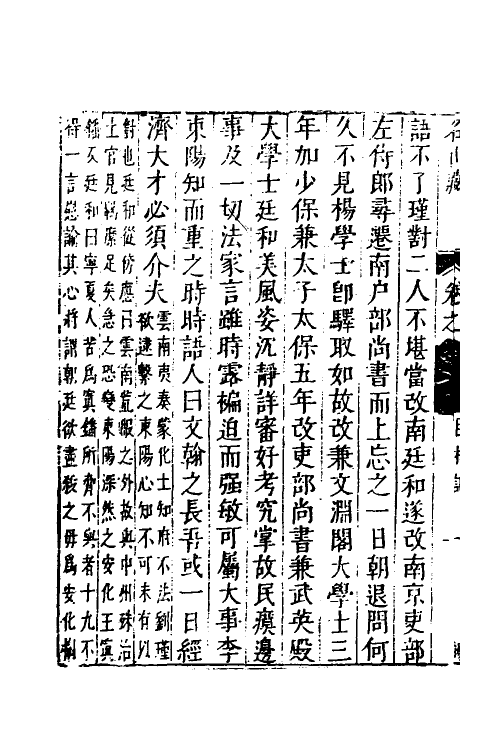 名山藏 卷之 臣林記 一
語不了瑾對二人不堪當改南廷和遂改南京吏部
左侍郎尋遷南户部尚書而上忘之一日朝退問何
久不見楊學士卽驛取如故改兼文淵閣大學士三
年加少保兼太子太保五年改吏部尚書兼武英殿
大學士廷和美風姿沉靜詳審好考究掌故民瘼邊
事及一切法家言雖時露褊迫而强敏可屬大事李
東陽知而重之時時語人曰文翰之長吾或一日經
濟大才必須介夫雲南夷奏蒙化土知府不法劉瑾
欲逮繫之東陽心知不可未有以
對也廷和從傍應曰雲南荒服之外故與中州殊治
土官見羈縻足矣急之恐變東陽深然之安化王寘
鐇反廷和曰寧夏人苦為寘鐇所脅不與者十九不
得一言慰諭其心將謂朝廷欲盡殺之毋為安化